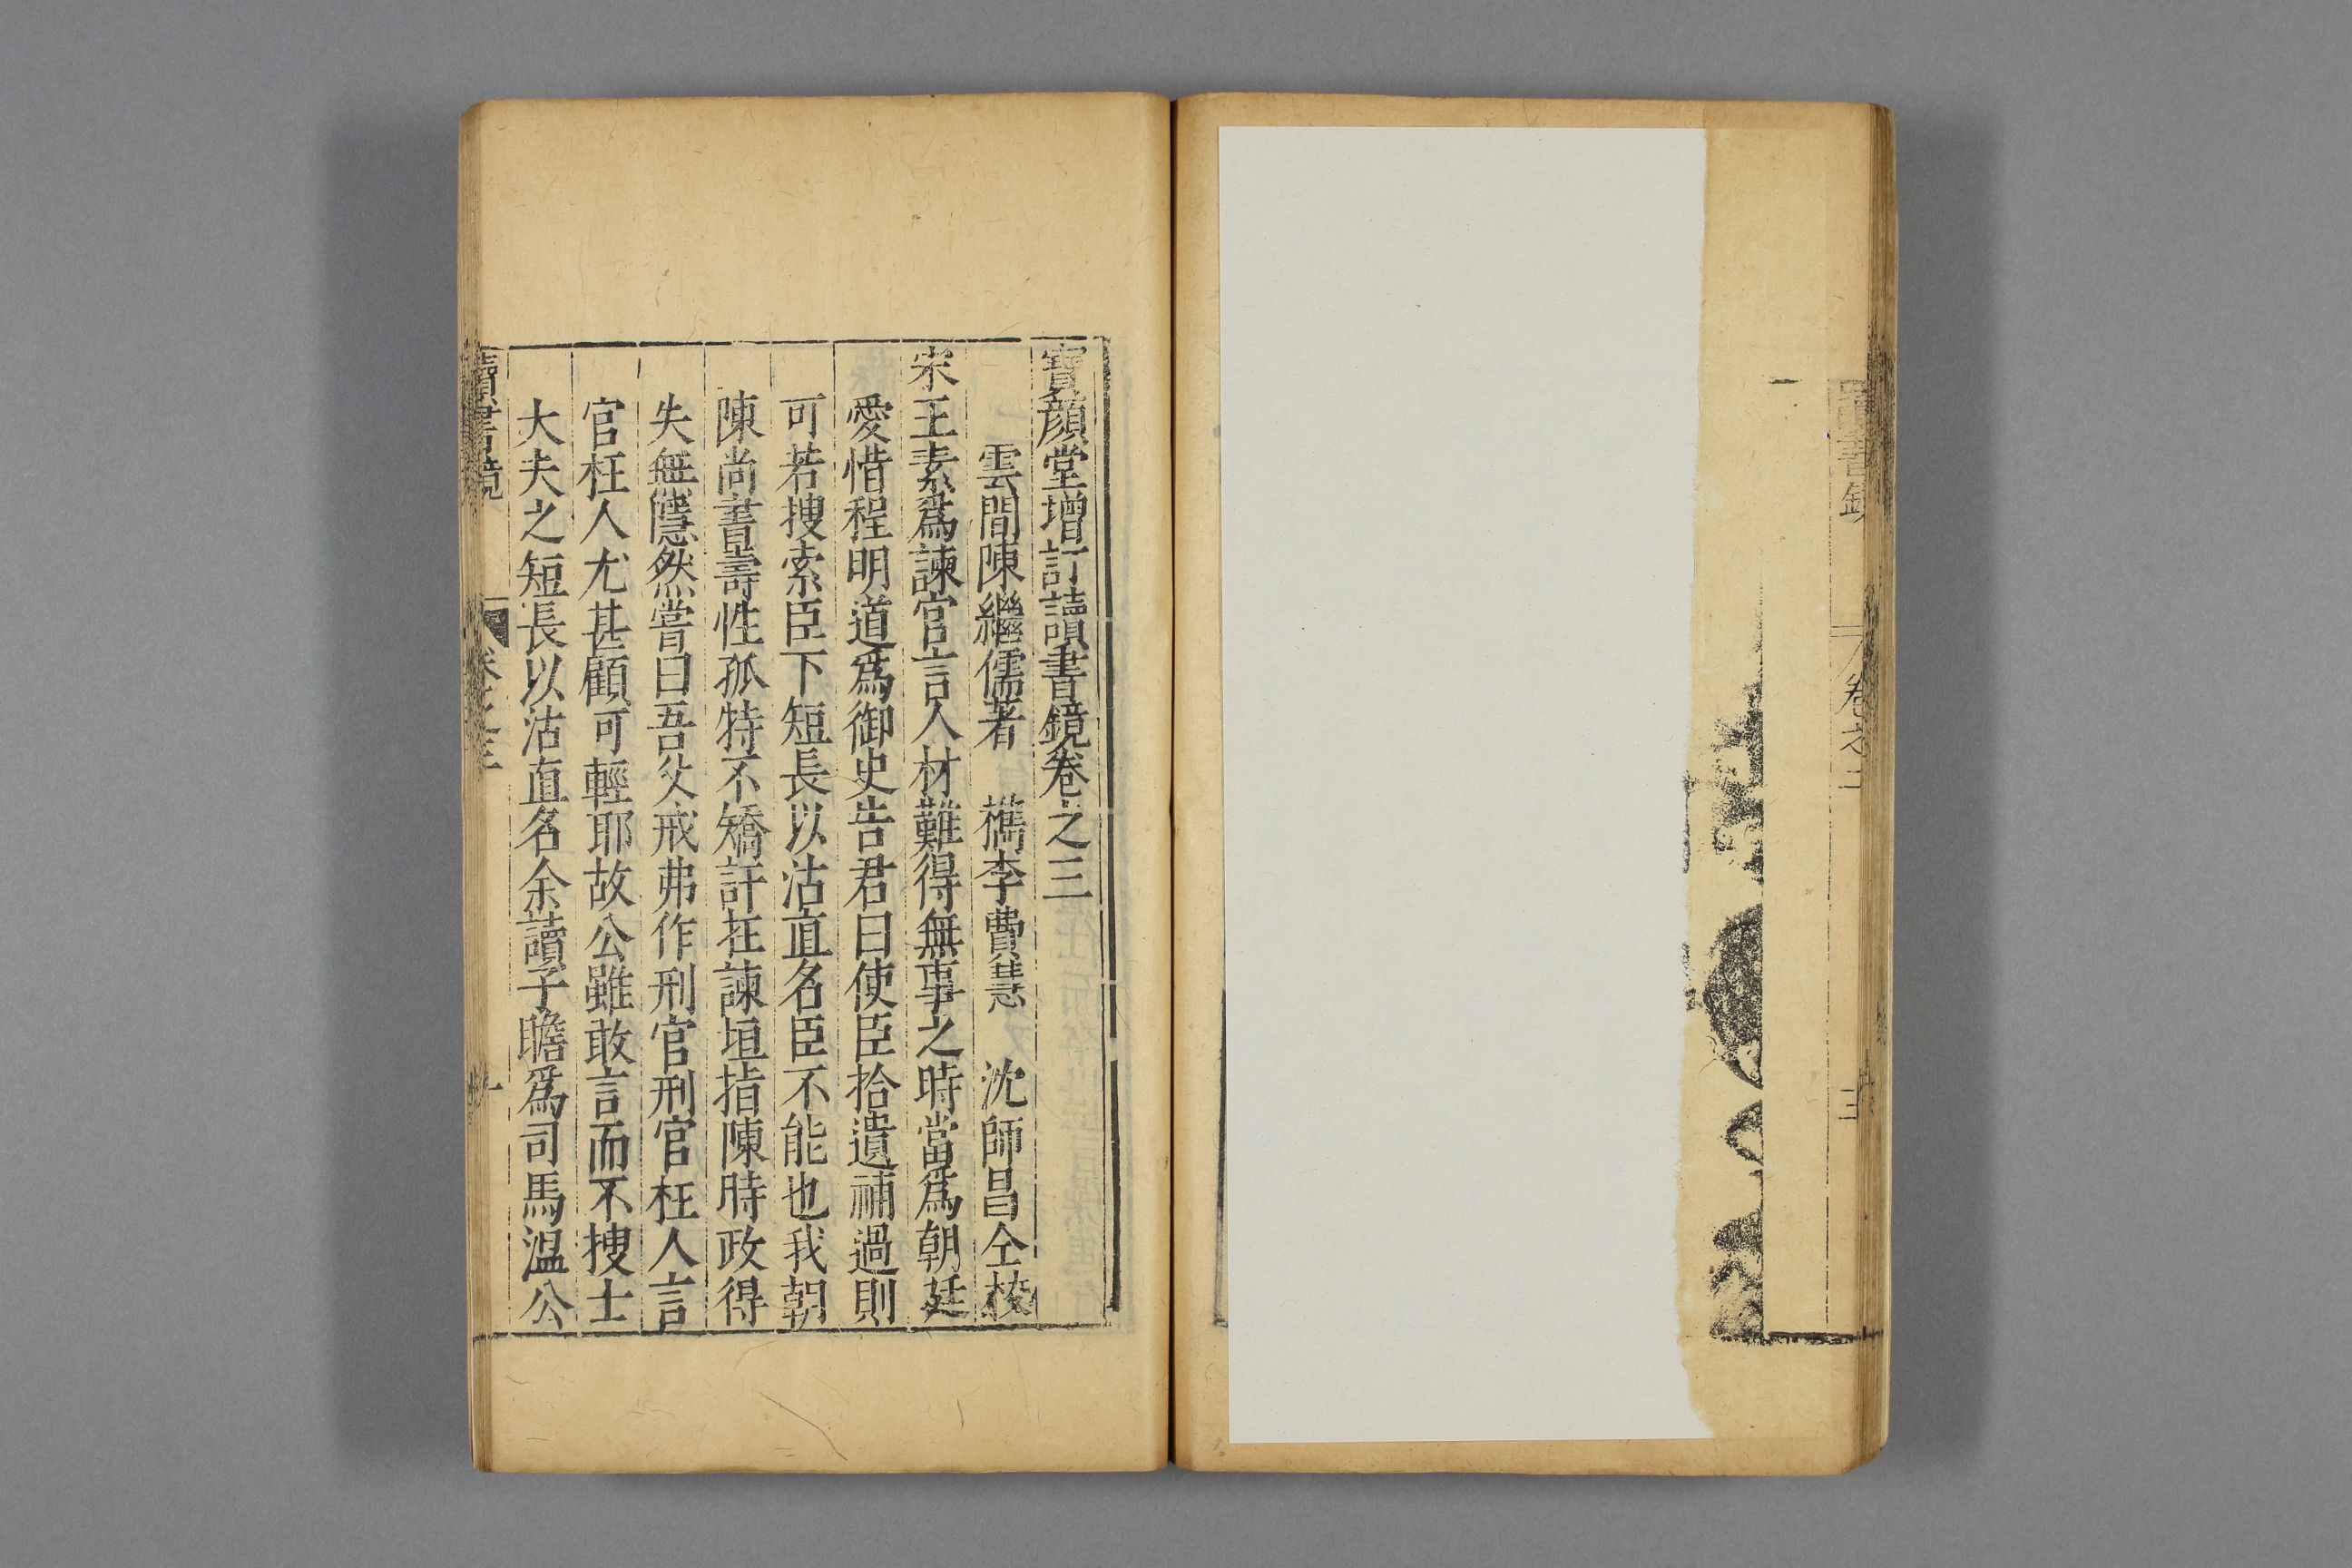 讀書鏡 卷之二
寶顏堂增訂讀書鏡卷之三
雲間陳繼儒著 檇李費慧 沈師昌仝校
宋王素爲諫官言人材難得無事之時當爲朝廷
愛惜程明道爲御史告君曰使臣拾遺補過則
可若捜索臣下短長以沽直名臣不能也我朝
陳尚書壽性孤特不矯訐在諫垣指陳時政得
失無隱然嘗曰吾父戒弗作刑官刑官枉人言
官枉人尤甚顧可輕耶故公雖敢言而不捜士
大夫之短長以沽直名余讀子瞻爲司馬温公
讀書鏡 卷之三 一